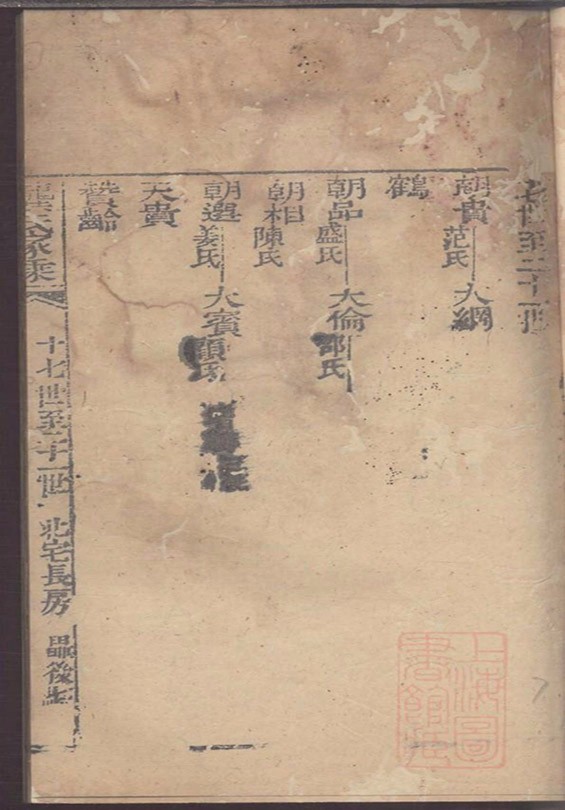 十七世至二十一世
朝貴 范氏 大綱
鶴
朝品 盛氏 大倫 邵氏
朝相 陳氏
朝選 姜氏 大賓 顧氏
天貴
贊齡
家乘
十七世至二十一世 北宅長房 後七
上海圖書館藏